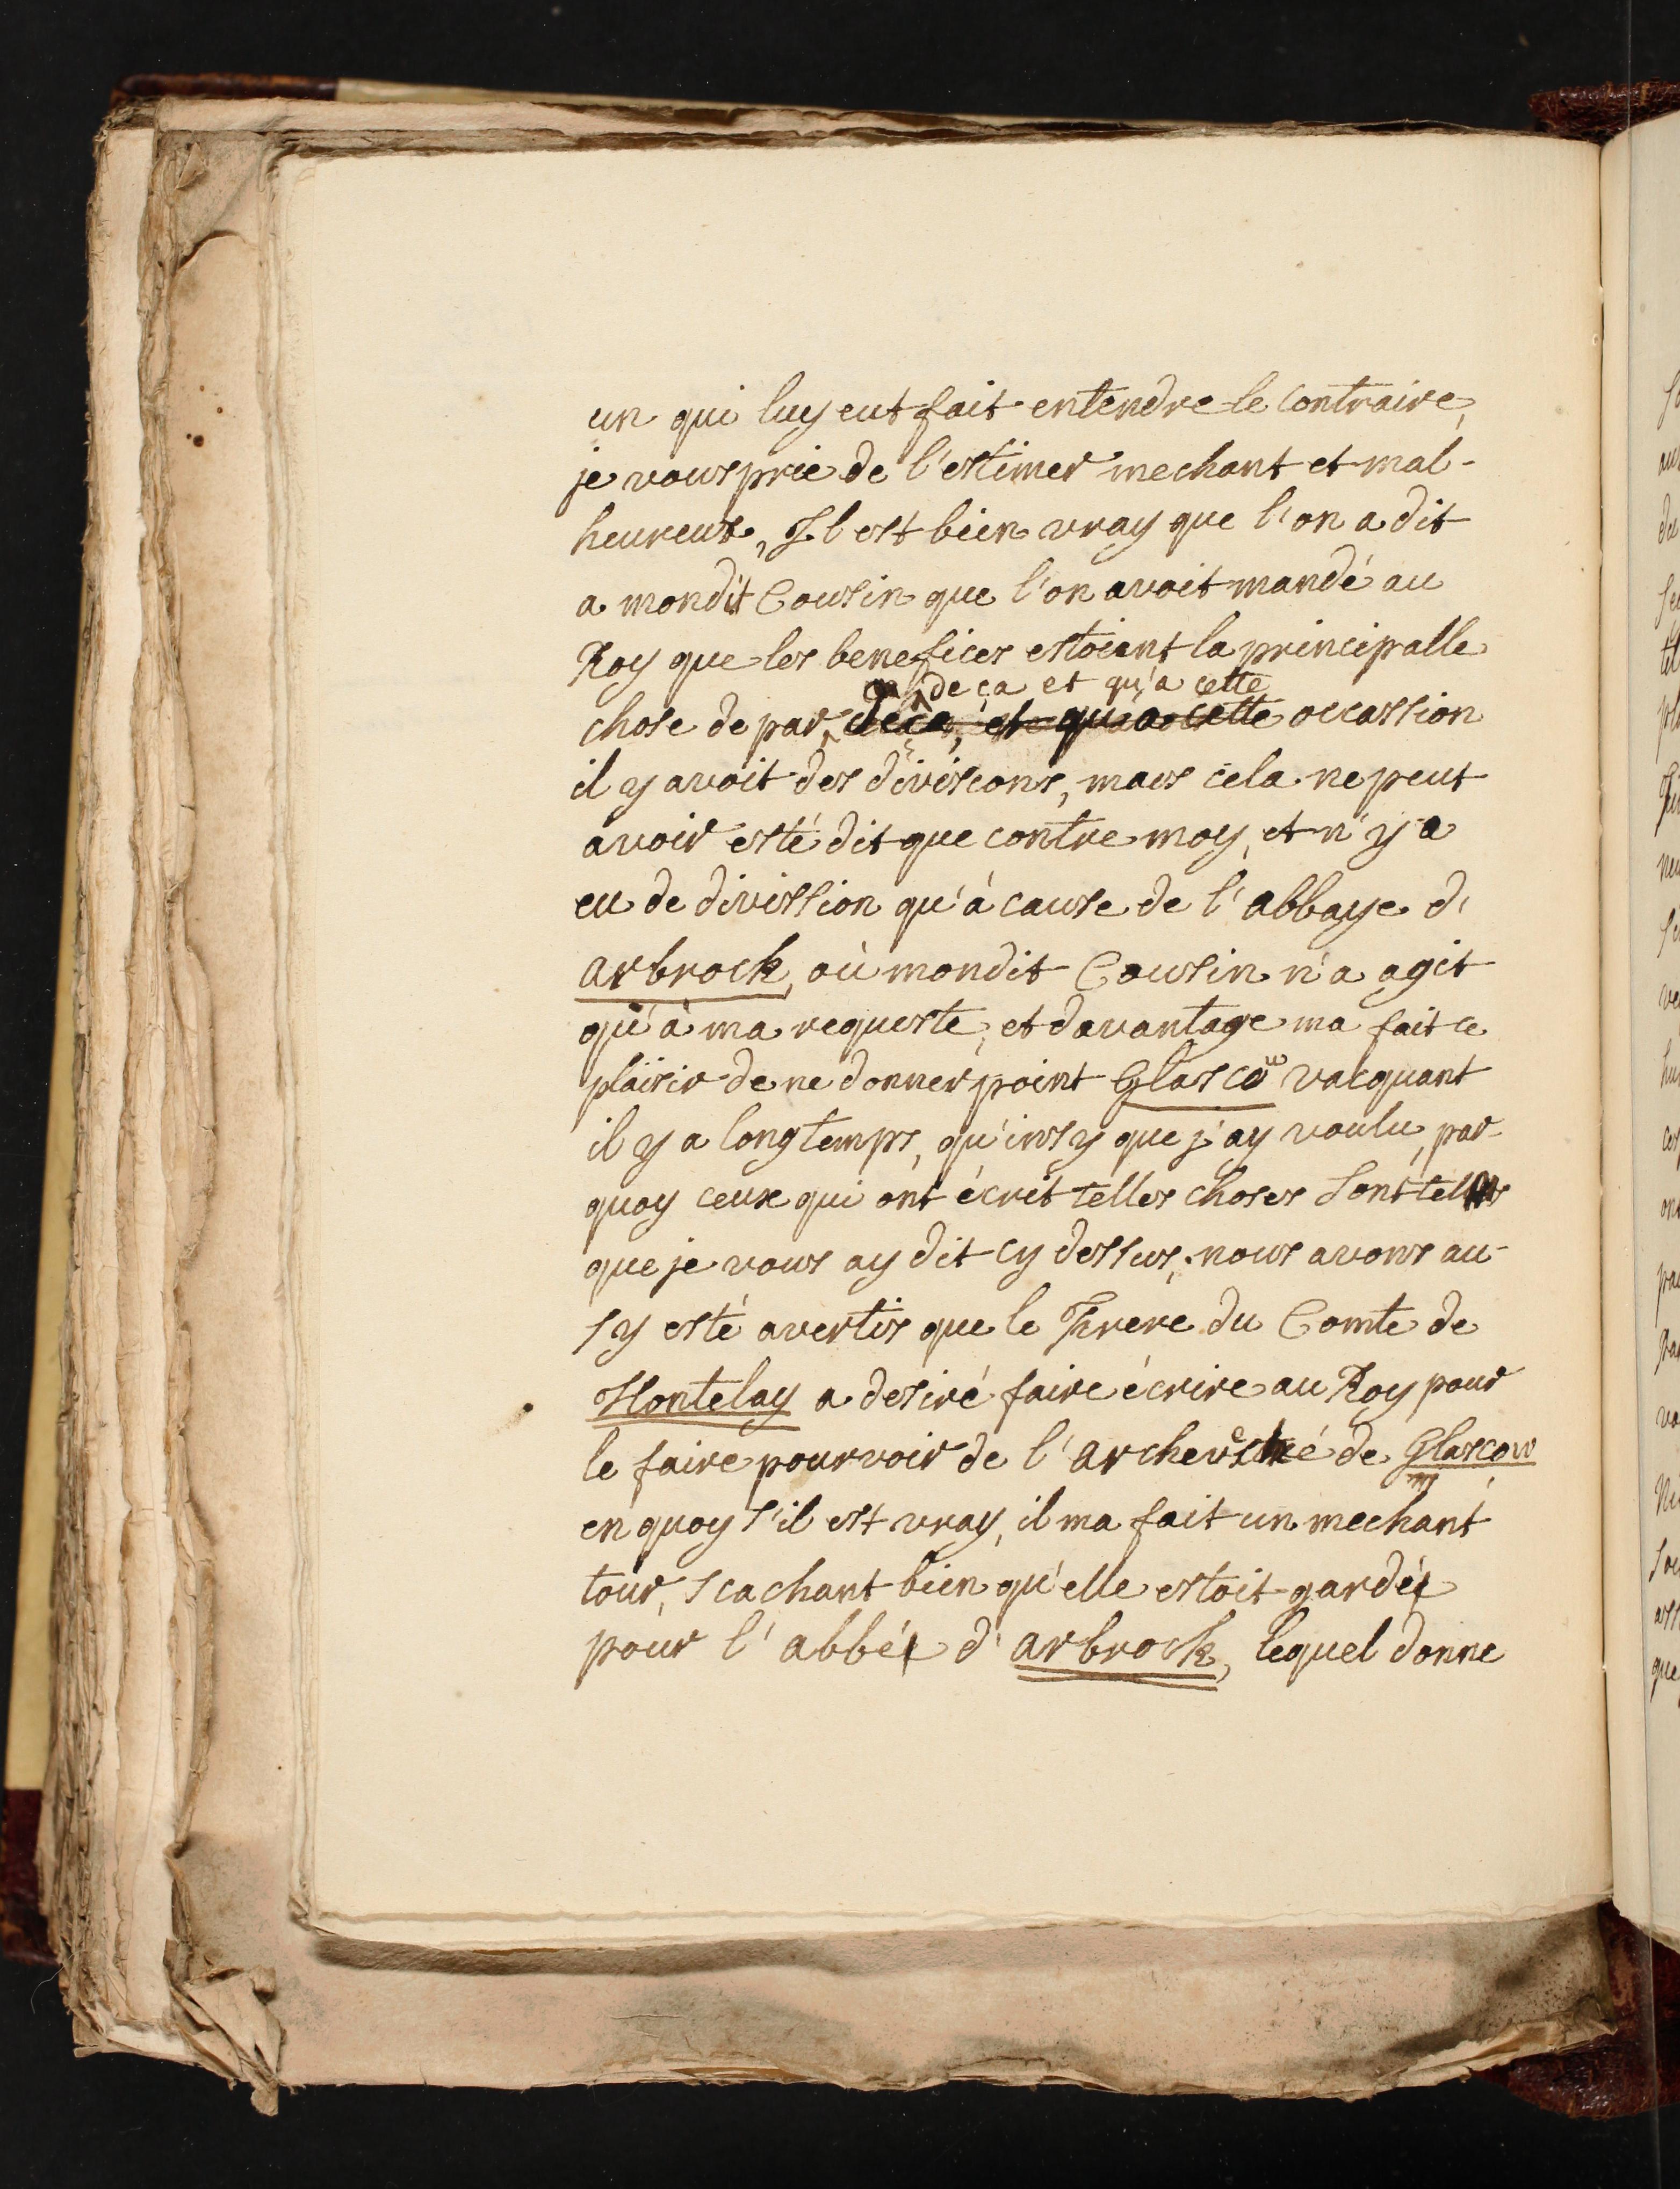 un qui luy eut fait entendre le contraire,
je vous prie de l'estimer mechant et mal-
heureux, Il est bien vray que l'on a dit
a mondit Cousin que l'on avoit mandé au
Roy que les benefices estoient la principalle
deça et qu'a cette
chose de par deça, et qu'a cette occassion
il y avoit des divisions, mais cela ne peut
avoir esté dit que contre moy, et n'y a
eu de divission qu'à cause de l'abbaye d'
arbrock, où mondit Cousin n'a agit
qu'à ma requeste, et davantage ma fait ce
plaisir de ne donner point Glascow vacquant
il y a longtemps, qu'insy que j'ay voulu, par-
quoy ceux qui ont écrit telles choses sont tels
que je vous ay dit cy dessus, nous avons au-
sy esté avertis que le Frere du Comte de
Hontelay a desiré faire écrire au Roy pour
le faire pourvoir de l'archevesché de Glascow
en quoy s'il est vray, il ma fait un mechant
tour, scachant bien qu'elle estoit gardée
pour l'abbé d'arbrock, lequel donne